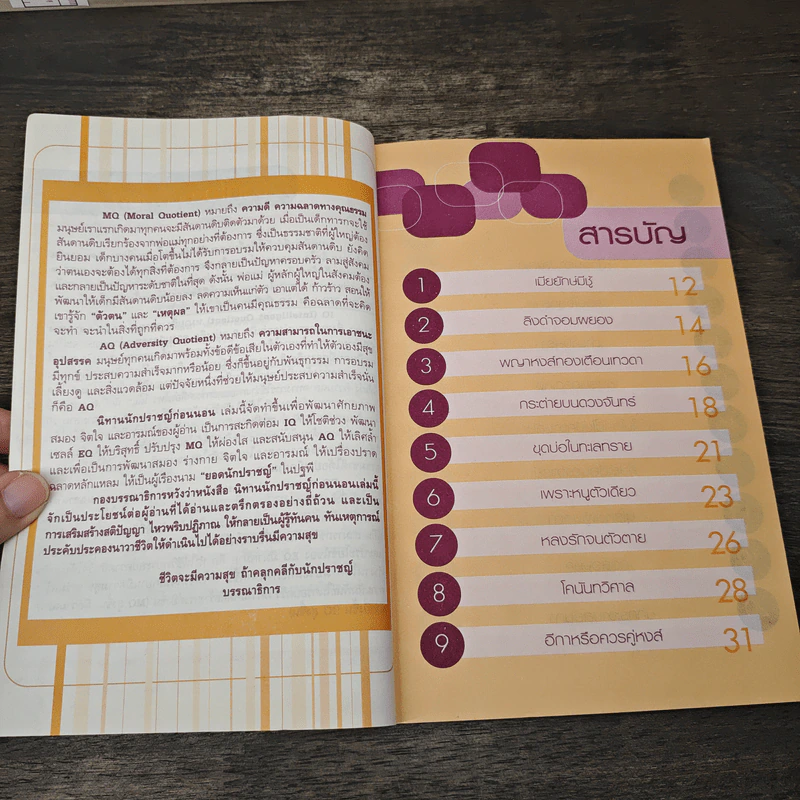 MQ (Moral Quotient) หมายถึง ความดี ความฉลาดทางคุณธรรม
มนุษย์เราแรกเกิดมาทุกคนจะมีสันดานดิบติดตัวมาด้วย เมื่อเป็นเด็กทารกจะใช้
สันดานดิบเรียกร้องจากพ่อแม่ทุกอย่างที่ต้องการ ซึ่งเป็นธรรมชาติที่ผู้ใหญ่ต้อง
ยินยอม เด็กบางคนเมื่อโตขึ้นไม่ได้รับการอบรมให้ควบคุมสันดานดิบ ยังคิด
ว่าตนเองจะต้องได้ทุกสิ่งที่ต้องการ จึงกลายเป็นปัญหาครอบครัว ลามสู่สังคม
และกลายเป็นปัญหาระดับชาติในที่สุด ดังนั้น พ่อแม่ ผู้หลักผู้ใหญ่ในสังคมต้อง
พัฒนาให้เด็กมีสันดานดิบน้อยลง ลดความเห็นแก่ตัว เอาแต่ได้ ก้าวร้าว สอนให้
เขารู้จัก "ตัวตน" และ "เหตุผล" ให้เขาเป็นคนมีคุณธรรม คือฉลาดที่จะคิด
จะทำ จะนำในสิ่งที่ถูกที่ควร
AQ (Adversity Quotient) หมายถึง ความสามารถในการเอาชนะ
อุปสรรค มนุษย์ทุกคนเกิดมาพร้อมทั้งข้อดีข้อเสียในตัวเองที่ทำให้ตัวเองมีสุข
มีทุกข์ ประสบความสำเร็จมากหรือน้อย ซึ่งก็ขึ้นอยู่กับพันธุกรรม การอบรม
เลี้ยงดู และสิ่งแวดล้อม แต่ปัจจัยหนึ่งที่ช่วยให้มนุษย์ประสบความสำเร็จนั้น
ก็คือ AQ
นิทานนักปราชญ์ก่อนนอน เล่มนี้จัดทำขึ้นเพื่อพัฒนาศักยภาพ
สมอง จิตใจ และอารมณ์ของผู้อ่าน เป็นการสะกิดต่อม IQ ให้โชติช่วง พัฒนา
เซลล์ EQ ให้บริสุทธิ์ ปรับปรุง MQ ให้ผ่องใส และสนับสนุน AQ ให้เลิศล้ำ
และเพื่อเป็นการพัฒนาสมอง ร่างกาย จิตใจ และอารมณ์ ให้เปรื่องปราด
ฉลาดหลักแหลม ให้เป็นผู้เรืองนาม "ยอดนักปราชญ์" ในปฐพี
กองบรรณาธิการหวังว่าหนังสือ นิทานนักปราชญ์ก่อนนอนเล่มนี้
จักเป็นประโยชน์ต่อผู้อ่านที่ได้อ่านและตรึกตรองอย่างถี่ถ้วน และเป็น
การเสริมสร้างสติปัญญา ไหวพริบปฏิภาณ ให้กลายเป็นผู้รู้ทันคน ทันเหตุการณ์
ประคับประคองนาวาชีวิตให้ดำเนินไปได้อย่างราบรื่นมีความสุข
ชีวิตจะมีความสุข ถ้าคลุกคลีกับนักปราชญ์
บรรณาธิการ
สารบัญ
1 เมียยักษ์มีชู้ 12
2 ลิงดำจอมพยอง 14
3 พญาหงส์ทองเตือนเทวดา 16
4 กระต่ายบนดวงจันทร์ 18
5 ขุดบ่อในทะเลทราย 21
6 เพราะหนูตัวเดียว 23
7 หลงรักจนตัวตาย 26
8 โคนันทวิศาล 28
9 อีกาหรือควรคู่หงส์ 31